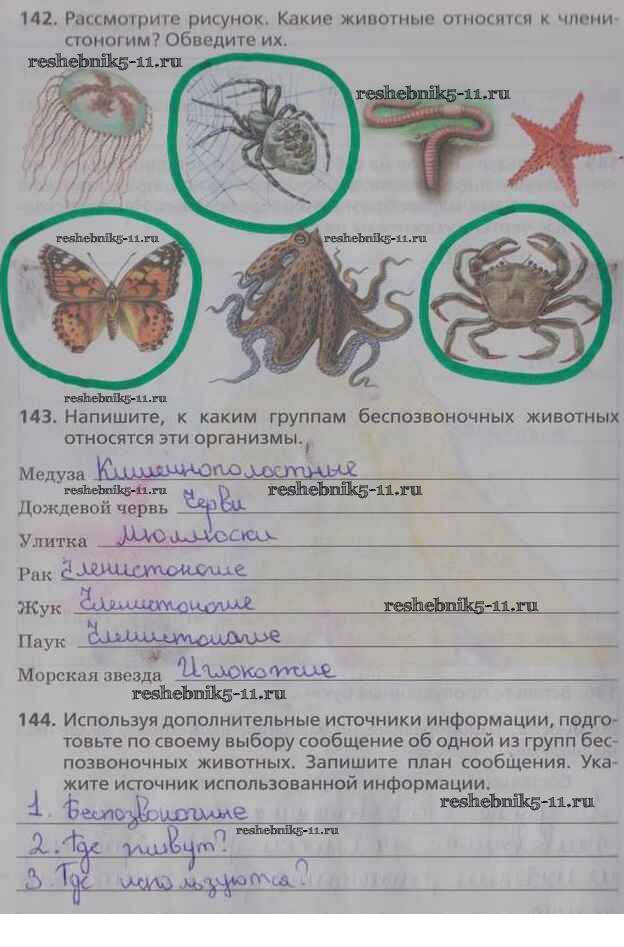 142. Рассмотрите рисунок. Какие животные относятся к члени-
стоногим? Обведите их.
reshebnik5-11.ru
reshebnik5-11.ru
reshebnik5-11.ru
reshebnik5-11.ru
reshebnik5-11.ru
143. Напишите, к каким группам беспозвоночных животных
относятся эти организмы.
Медуза Кишечнополостные
reshebnik5-11.ru
reshebnik5-11.ru
Дождевой червь Черви
Улитка Моллюски
Рак Членистоногие
Жук Членистоногие
reshebnik5-11.ru
Паук Членистоногие
Морская звезда Иглокожие
reshebnik5-11.ru
144. Используя дополнительные источники информации, подго-
товьте по своему выбору сообщение об одной из групп бес-
позвоночных животных. Запишите план сообщения. Ука-
жите источник использованной информации.
1. Беспозвоночные
reshebnik5-11.ru
2. Где живут?
reshebnik5-11.ru
3. Где используются?